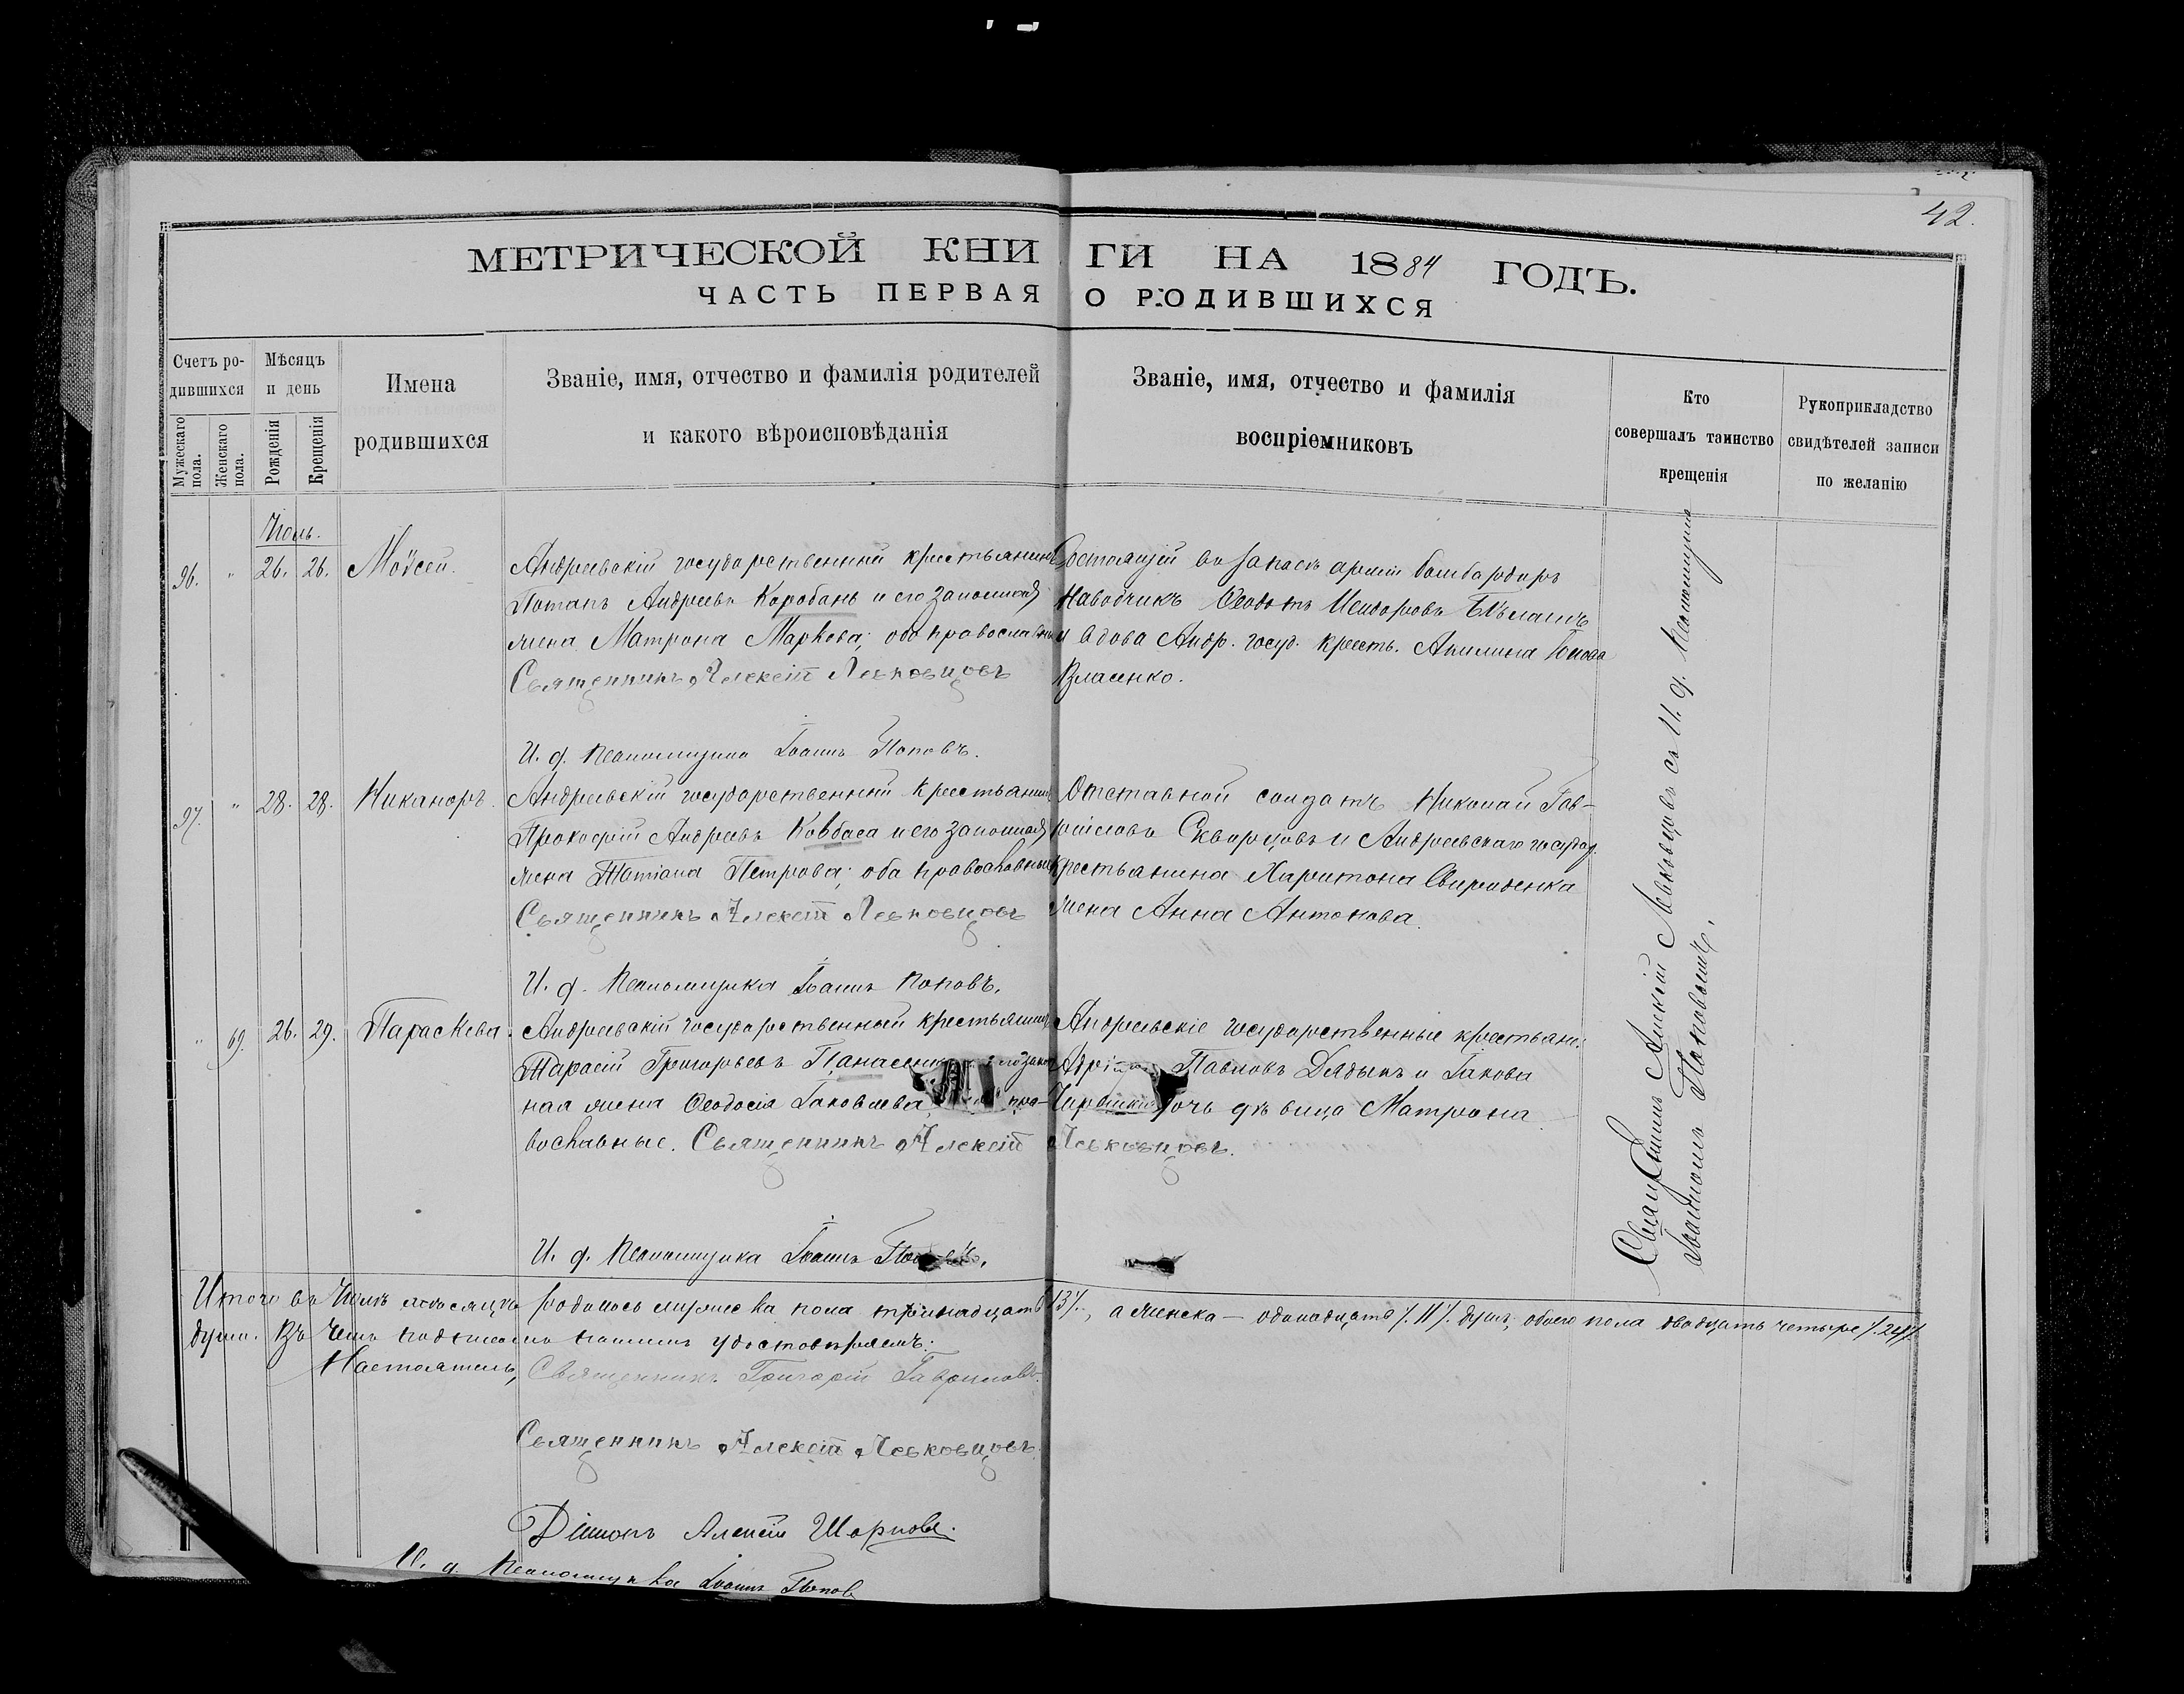 42.
МЕТРИЧЕСКОЙ КНИГИ НА 1884 ГОДЪ.
ЧАСТЬ ПЕРВАЯ О РОДИВШИХСЯ
Счетъ ро-
дившихся
Мужескаго
пола.
Женскаго
пола.
Мѣсяцъ
и день
Рожденія
Крещенія
Имена
родившихся
Званіе, имя, отчество и фамилія родителей
и какого вѣроисповѣданія
Званіе, имя, отчество и фамилія
воспріемниковъ
Кто
совершалъ таинство
крещенія
Рукоприкладство
свидѣтелей записи
по желанію
Іюль.
96. " 26. 26. Моѵсей.
Андреевскій государственный крестьянинъ
Потапъ Андреевъ Коробань и его законная
жена Матрона Маркова; оба православные
Священникъ Алексій Левковцовъ
И. д. Псаломщика Іоаннъ Поповъ.
Состоящій въ запасѣ арміи бомбардиръ
наводчикъ Ѳеодотъ Исидоровъ Бѣлашъ
и вдова Андр. госуд. крест. Акилина
Власенко.
97. " 28. 28. Никаноръ.
Андреевскій государственный крестьянинъ
Прокофій Андреевъ Ковбаса и его законная
жена Татіана Петрова; оба православные
Священникъ Алексій Левковцовъ
И. д. Псаломщика Іоаннъ Поповъ.
Отставной солдатъ Николай Гав-
ріиловъ Скворцовъ и Андреевскаго государ.
крестьянина Харитона Свириденка
жена Анна Антонова.
" 69. 26. 29. Параскева.
Андреевскій государственный крестьянинъ
Тарасій Григорьевъ Панасенко
ная жена Ѳеодосія Іаковлева пра-
вославные. Священникъ Алексій Левковцовъ.
И. д. Псаломщика Іоаннъ Поповъ.
Андреевскіе государственные крестьяне:
Павловъ Дядыкъ и Іакова
дочь дѣвица Матрона.
Священникъ Алексій Левковцовъ съ И. д. Псаломщика
Іоанномъ Поповымъ.
Итого въ Іюлѣ мѣсяцѣ родилось мужеска пола тринадцать /.13/., а женска – одинадцать /.11/. душъ, обоего пола двадцать четыре /.24/.
душъ. Въ чемъ подписомъ нашимъ удостовѣряемъ:
Настоятель, Священникъ Григорій Гавриловъ.
Священникъ Алексій Левковцовъ
Діаконъ Алексій Шарковъ.
И. д. Псаломщика Іоаннъ Поповъ